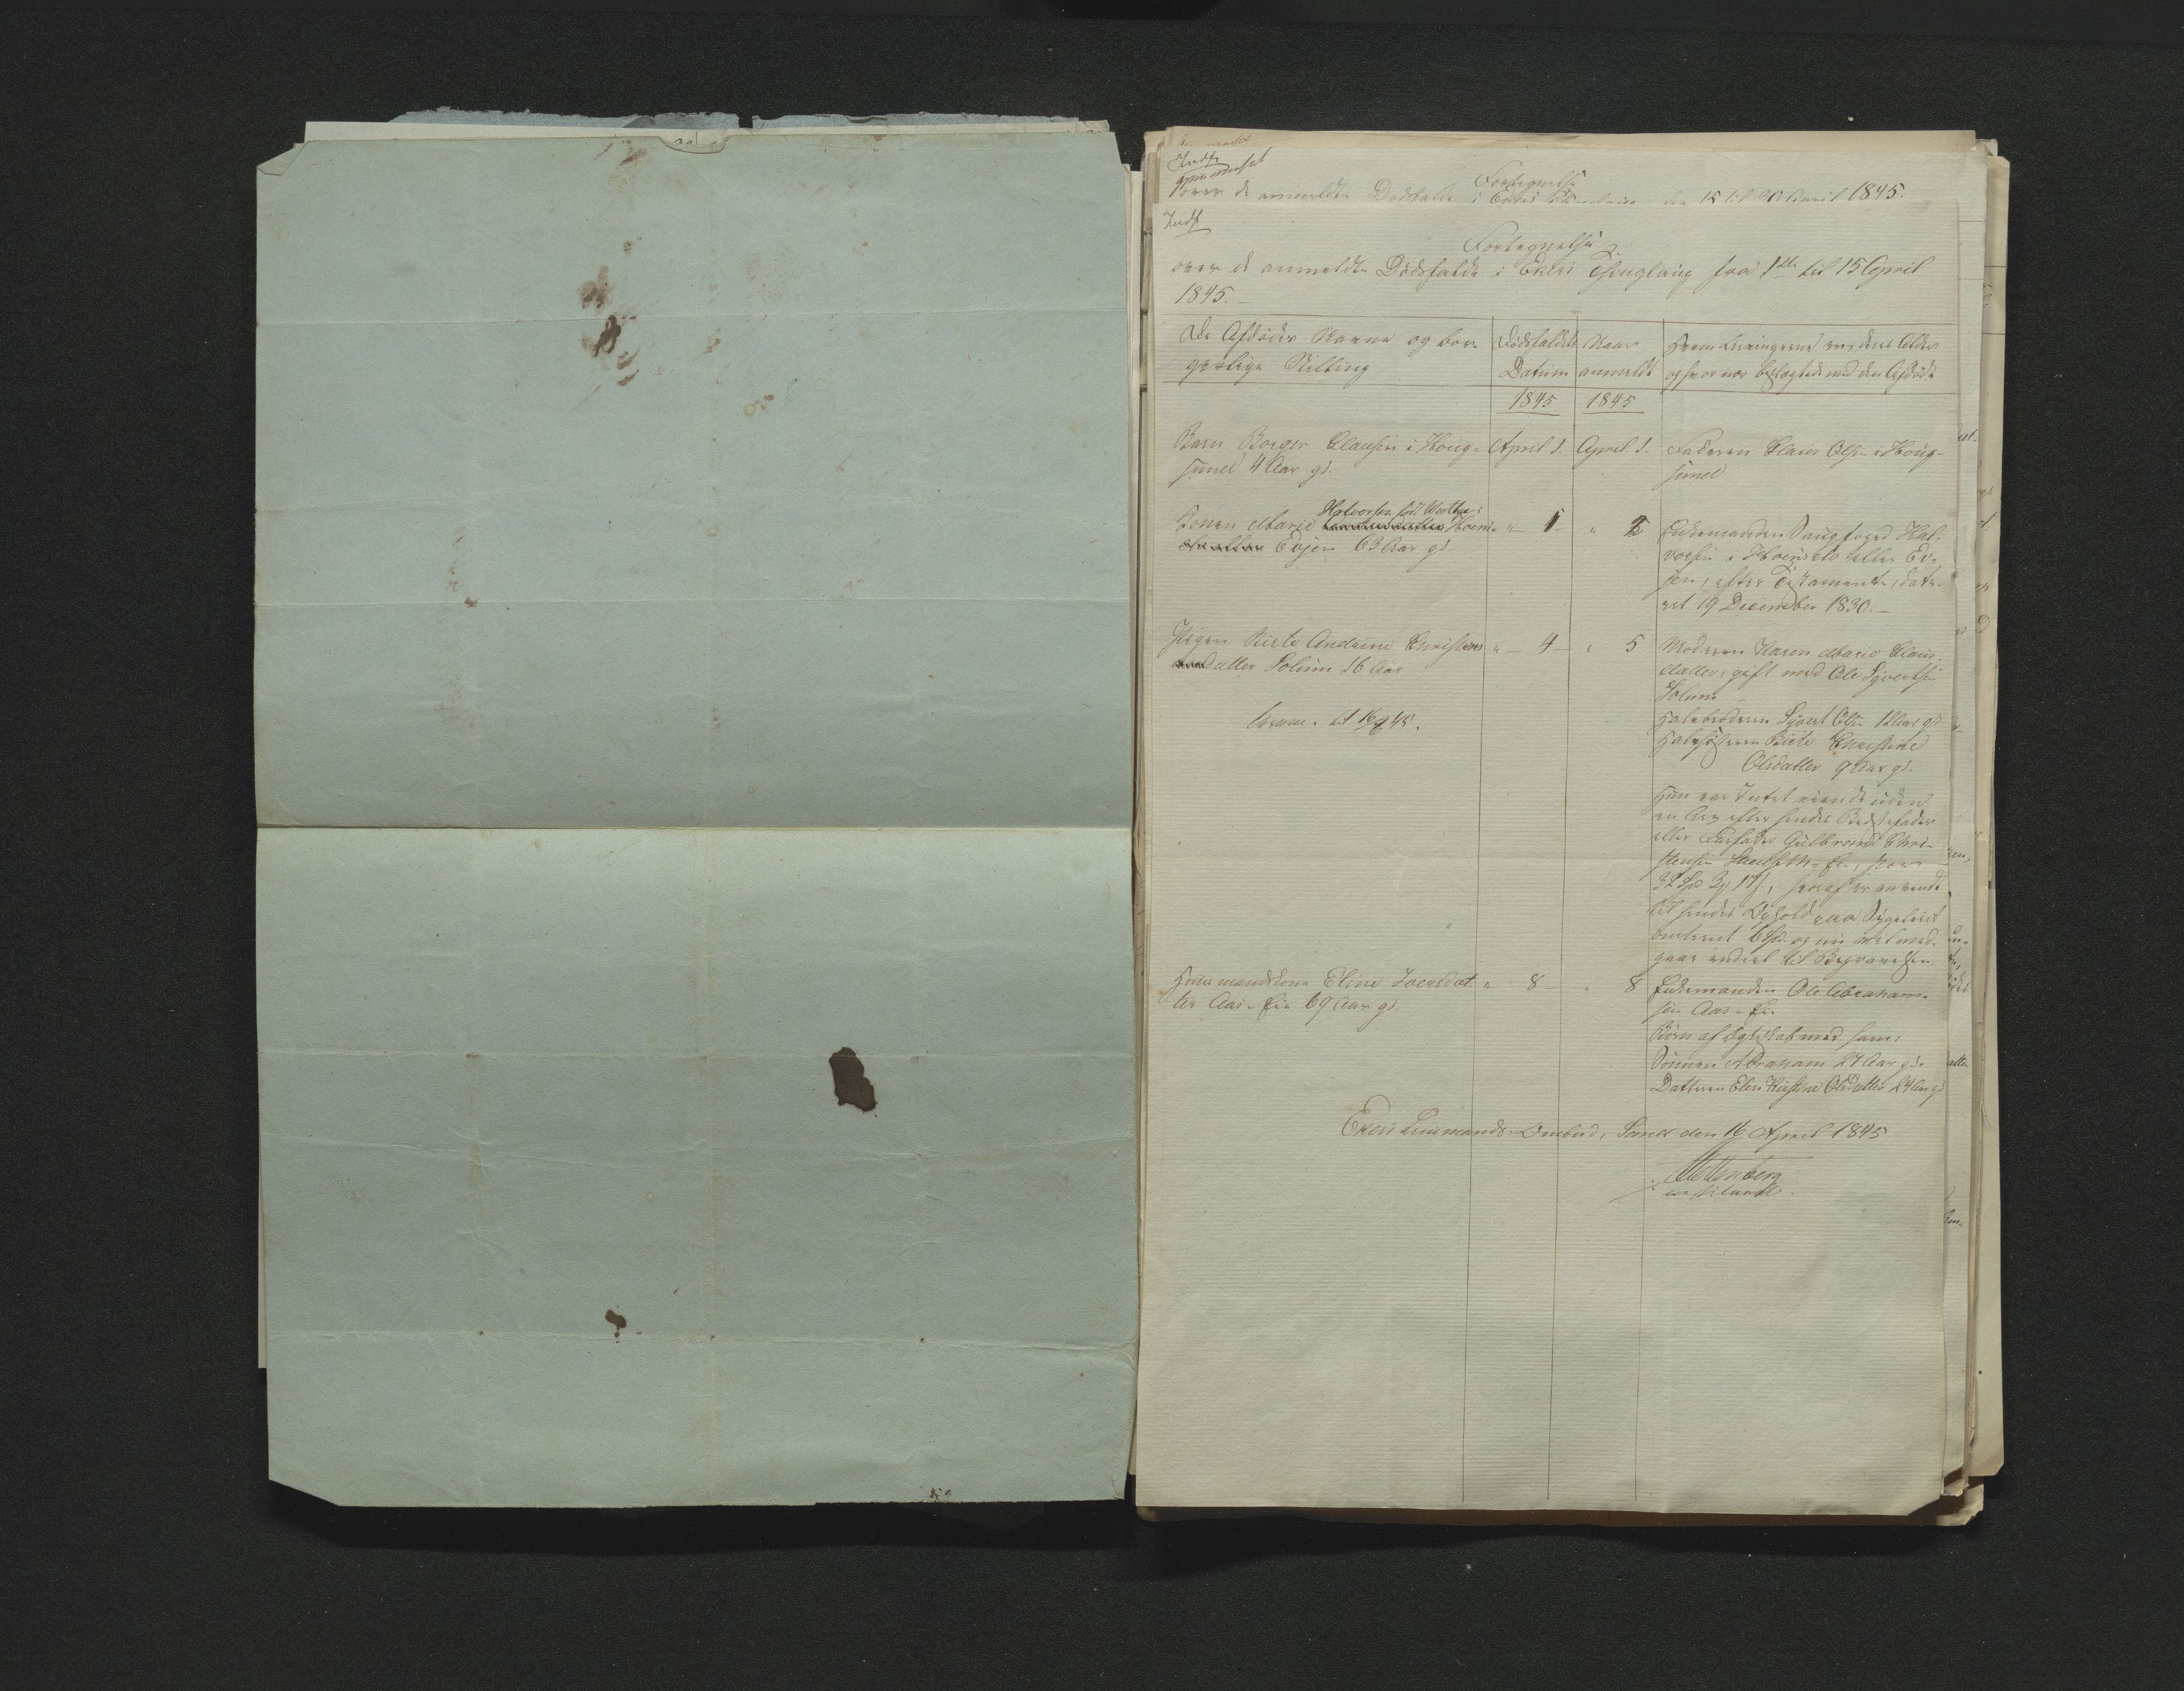 Indf
Fortegnelse
over de anmeldte Dødsfalde i Ekers Thinglaug fra 15 til 30 April 1845.
Indf
Fortegnelse
over de anmeldte Dødsfalde i Ekers Thinglaug fra 1ste til 15 April
1845.
De Afdødes Navne og bor-
gerlige Stilling
Dødsfaldets
Datum
Naar
anmeldt
Hvem Arvingerne ere, deres Alder
og hvor nær beslægtede med den Afdøde
1845 1845
Barn Borger Clausen i Houg-
sund 4 Aar gl.
April 1. April 1.
Faderen Claus Olsen i Houg-
sund
Konen Marie Halvorsen født
Evjen 63 Aar gl
" 1 " 2
Enkemanden Saugfoged Hal-
vorsen i eller Ev-
jen, efter Testament, date-
ret 19 December 1830.
Pigen Birte Andrine Christens
datter Solum 16 Aar
" 4 " 5
Moderen Karen Marie Claus
datter, gift med Ole Syvertsen
Solum
Halvbroderen Syvert Olsen 12 Aar gl
Halvsøsteren Birte Christine
Olsdatter 9 Aar gl.
Hun var Intet eiende uden
en Arv efter hendes Bedstefader
eller Farfader Gulbrand Chri-
stensen
hvoraf er anvendt
til hendes Ophold paa Sygehuset
omtrent 6 Spd. og nu vil med-
gaae endeel til Begravelsen
Huusmandskone Eline Iversdat-
ter Aas-Eie 69 Aar gl.
" 8 " 8
Enkemanden Ole Abraham-
sen Aas-Eie
Børn af Ægteskab med ham:
Sønnen Abraham 27 Aar gl.
Datteren Elen Kirstine Olsdatter 24 Aar gl
Ekers Lensmands-Ombud, Sand den 16 April 1845
constitueret.